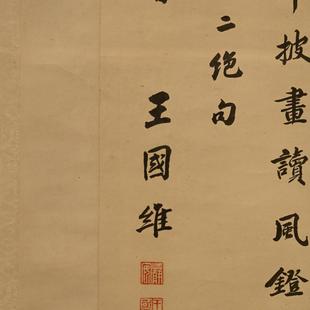 披畫讀風鐙
二絕句
王國維